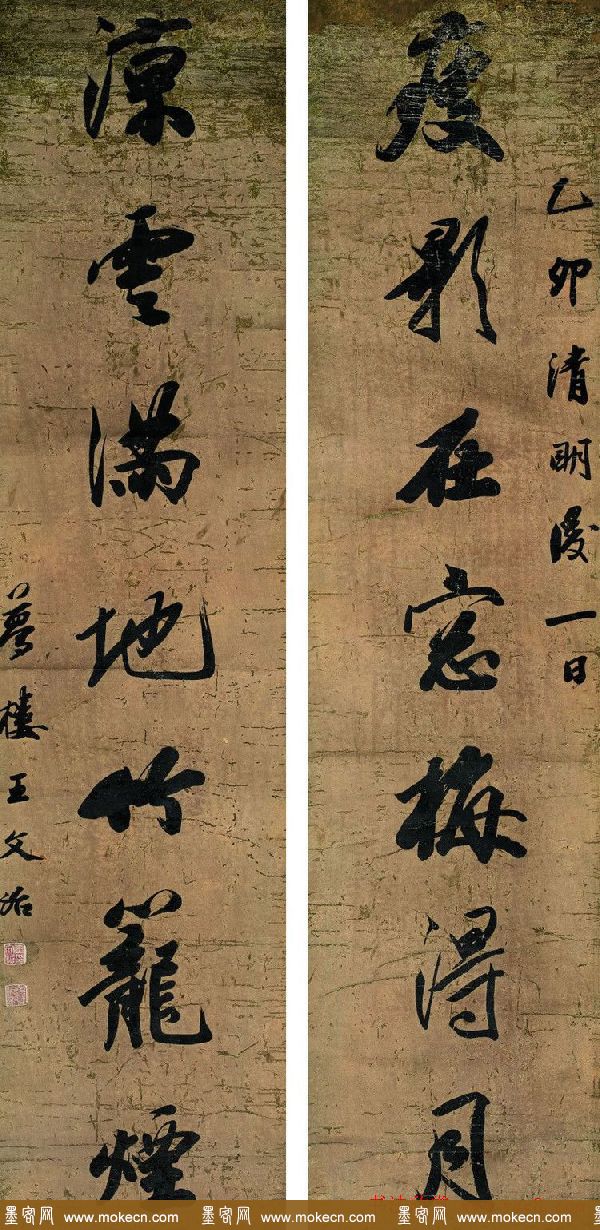 乙卯清明後一日
瘦影在窓梅得月
涼雲滿地竹籠煙
夢樓王文治
墨客网 www.mokecn.com 墨客网 www.mokecn.com 墨客网 www.mokecn.com